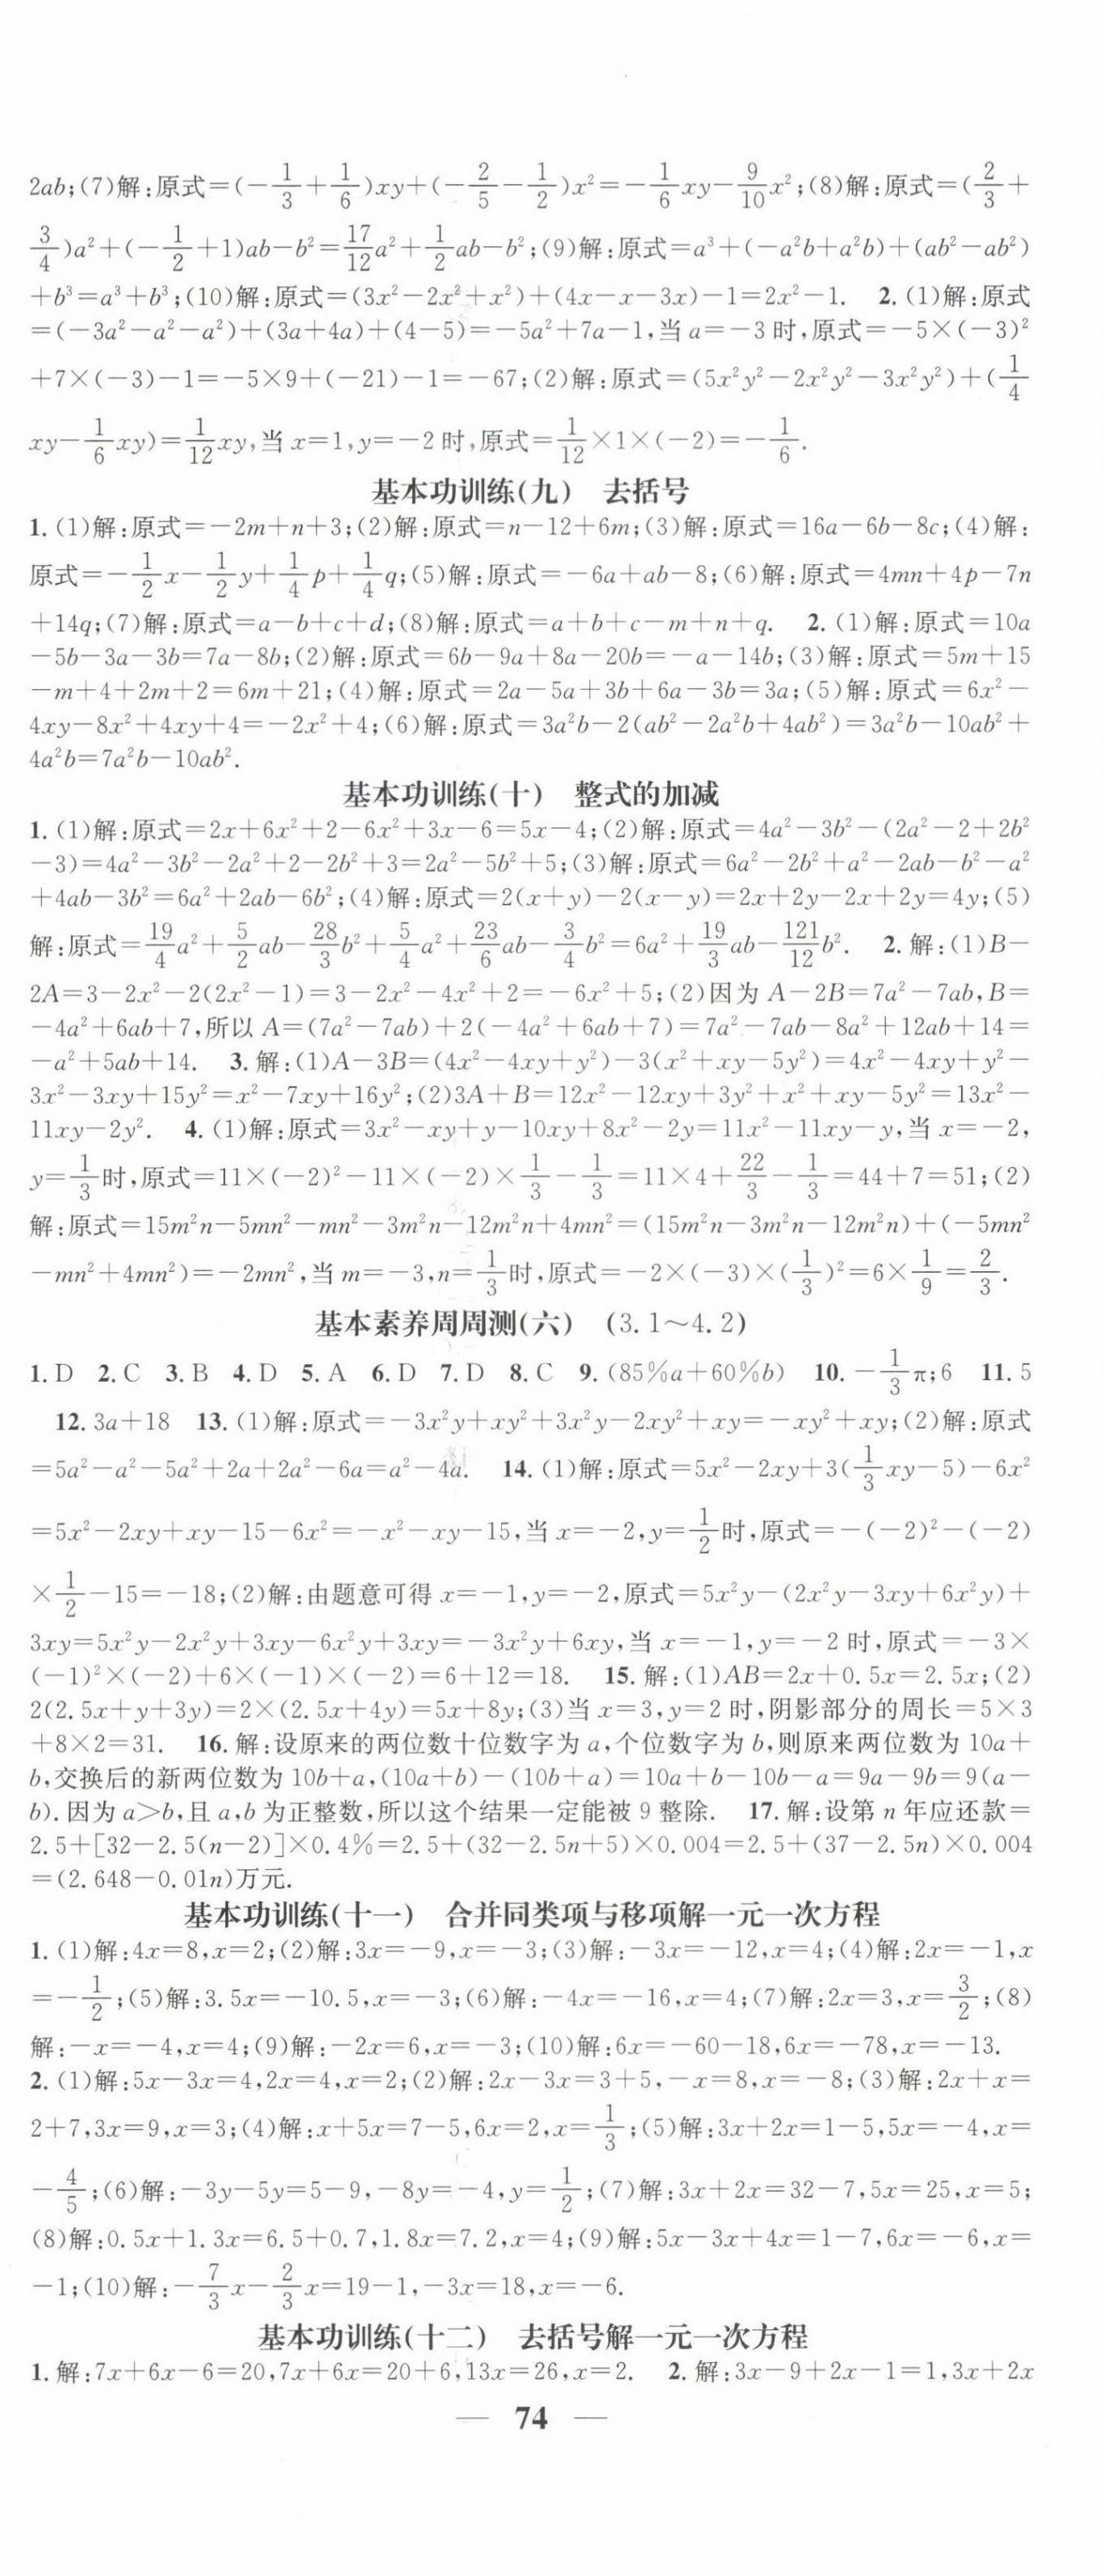 2ab;(7)解:原式=(-1/3+1/6)xy+(-2/5-1/2)x²=-1/6xy-9/10x²;(8)解:原式=(2/3+
3/4)a²+(-1/2+1)ab-b²=17/12a²+1/2ab-b²;(9)解:原式=a³+(-a²b+a²b)+(ab²-ab²)
+b³=a³+b³;(10)解:原式=(3x²-2x²+x²)+(4x-x-3x)-1=2x²-1. 2.(1)解:原式
=(-3a²-a²-a²)+(3a+4a)+(4-5)=-5a²+7a-1,当a=-3时,原式=-5×(-3)²
+7×(-3)-1=-5×9+(-21)-1=-67;(2)解:原式=(5x²y²-2x²y²-3x²y²)+(1/4
xy-1/6xy)=1/12xy,当x=1,y=-2时,原式=1/12×1×(-2)=-1/6.
基本功训练(九) 去括号
1.(1)解:原式=-2m+n+3;(2)解:原式=n-12+6m;(3)解:原式=16a-6b-8c;(4)解:
原式=-1/2x-1/2y+1/4p+1/4q;(5)解:原式=-6a+ab-8;(6)解:原式=4mn+4p-7n
+14q;(7)解:原式=a-b+c+d;(8)解:原式=a+b+c-m+n+q. 2.(1)解:原式=10a
-5b-3a-3b=7a-8b;(2)解:原式=6b-9a+8a-20b=-a-14b;(3)解:原式=5m+15
-m+4+2m+2=6m+21;(4)解:原式=2a-5a+3b+6a-3b=3a;(5)解:原式=6x²-
4xy-8x²+4xy+4=-2x²+4;(6)解:原式=3a²b-2(ab²-2a²b+4ab²)=3a²b-10ab²+
4a²b=7a²b-10ab².
基本功训练(十) 整式的加减
1.(1)解:原式=2x+6x²+2-6x²+3x-6=5x-4;(2)解:原式=4a²-3b²-(2a²-2+2b²
-3)=4a²-3b²-2a²+2-2b²+3=2a²-5b²+5;(3)解:原式=6a²-2b²+a²-2ab-b²-a²
+4ab-3b²=6a²+2ab-6b²;(4)解:原式=2(x+y)-2(x-y)=2x+2y-2x+2y=4y;(5)
解:原式=19/4a²+5/2ab-28/3b²+5/4a²+23/6ab-3/4b²=6a²+19/3ab-121/12b². 2.解:(1)B-
2A=3-2x²-2(2x²-1)=3-2x²-4x²+2=-6x²+5;(2)因为A-2B=7a²-7ab,B=
-4a²+6ab+7,所以A=(7a²-7ab)+2(-4a²+6ab+7)=7a²-7ab-8a²+12ab+14=
-a²+5ab+14. 3.解:(1)A-3B=(4x²-4xy+y²)-3(x²+xy-5y²)=4x²-4xy+y²-
3x²-3xy+15y²=x²-7xy+16y²;(2)3A+B=12x²-12xy+3y²+x²+xy-5y²=13x²-
11xy-2y². 4.(1)解:原式=3x²-xy+y-10xy+8x²-2y=11x²-11xy-y,当x=-2,
y=1/3时,原式=11×(-2)²-11×(-2)×1/3-1/3=11×4+22/3-1/3=44+7=51;(2)
解:原式=15m²n-5mn²-mn²-3m²n-12m²n+4mn²=(15m²n-3m²n-12m²n)+(-5mn²
-mn²+4mn²)=-2mn²,当m=-3,n=1/3时,原式=-2×(-3)×(1/3)²=6×1/9=2/3.
基本素养周周测(六) (3.1～4.2)
1.D 2.C 3.B 4.D 5.A 6.D 7.D 8.C 9.(85%a+60%b) 10.-1/3π;6 11.5
12.3a+18 13.(1)解:原式=-3x²y+xy²+3x²y-2xy²+xy=-xy²+xy;(2)解:原式
=5a²-a²-5a²+2a+2a²-6a=a²-4a. 14.(1)解:原式=5x²-2xy+3(1/3xy-5)-6x²
=5x²-2xy+xy-15-6x²=-x²-xy-15,当x=-2,y=1/2时,原式=-(-2)²-(-2)
×1/2-15=-18;(2)解:由题意可得x=-1,y=-2,原式=5x²y-(2x²y-3xy+6x²y)+
3xy=5x²y-2x²y+3xy-6x²y+3xy=-3x²y+6xy,当x=-1,y=-2时,原式=-3×
(-1)²×(-2)+6×(-1)×(-2)=6+12=18. 15.解:(1)AB=2x+0.5x=2.5x;(2)
2(2.5x+y+3y)=2×(2.5x+4y)=5x+8y;(3)当x=3,y=2时,阴影部分的周长=5×3
+8×2=31. 16.解:设原来的两位数十位数字为a,个位数字为b,则原来两位数为10a+
b,交换后的新两位数为10b+a,(10a+b)-(10b+a)=10a+b-10b-a=9a-9b=9(a-
b).因为a>b,且a,b为正整数,所以这个结果一定能被9整除. 17.解:设第n年应还款=
2.5+[32-2.5(n-2)]×0.4%=2.5+(32-2.5n+5)×0.004=2.5+(37-2.5n)×0.004
=(2.648-0.01n)万元.
基本功训练(十一) 合并同类项与移项解一元一次方程
1.(1)解:4x=8,x=2;(2)解:3x=-9,x=-3;(3)解:-3x=-12,x=4;(4)解:2x=-1,x
=-1/2;(5)解:3.5x=-10.5,x=-3;(6)解:-4x=-16,x=4;(7)解:2x=3,x=3/2;(8)
解:-x=-4,x=4;(9)解:-2x=6,x=-3;(10)解:6x=-60-18,6x=-78,x=-13.
2.(1)解:5x-3x=4,2x=4,x=2;(2)解:2x-3x=3+5,-x=8,x=-8;(3)解:2x+x=
2+7,3x=9,x=3;(4)解:x+5x=7-5,6x=2,x=1/3;(5)解:3x+2x=1-5,5x=-4,x=
-4/5;(6)解:-3y-5y=5-9,-8y=-4,y=1/2;(7)解:3x+2x=32-7,5x=25,x=5;
(8)解:0.5x+1.3x=6.5+0.7,1.8x=7.2,x=4;(9)解:5x-3x+4x=1-7,6x=-6,x=
-1;(10)解:-7/3x-2/3x=19-1,-3x=18,x=-6.
基本功训练(十二) 去括号解一元一次方程
1.解:7x+6x-6=20,7x+6x=20+6,13x=26,x=2. 2.解:3x-9+2x-1=1,3x+2x
— 74 —